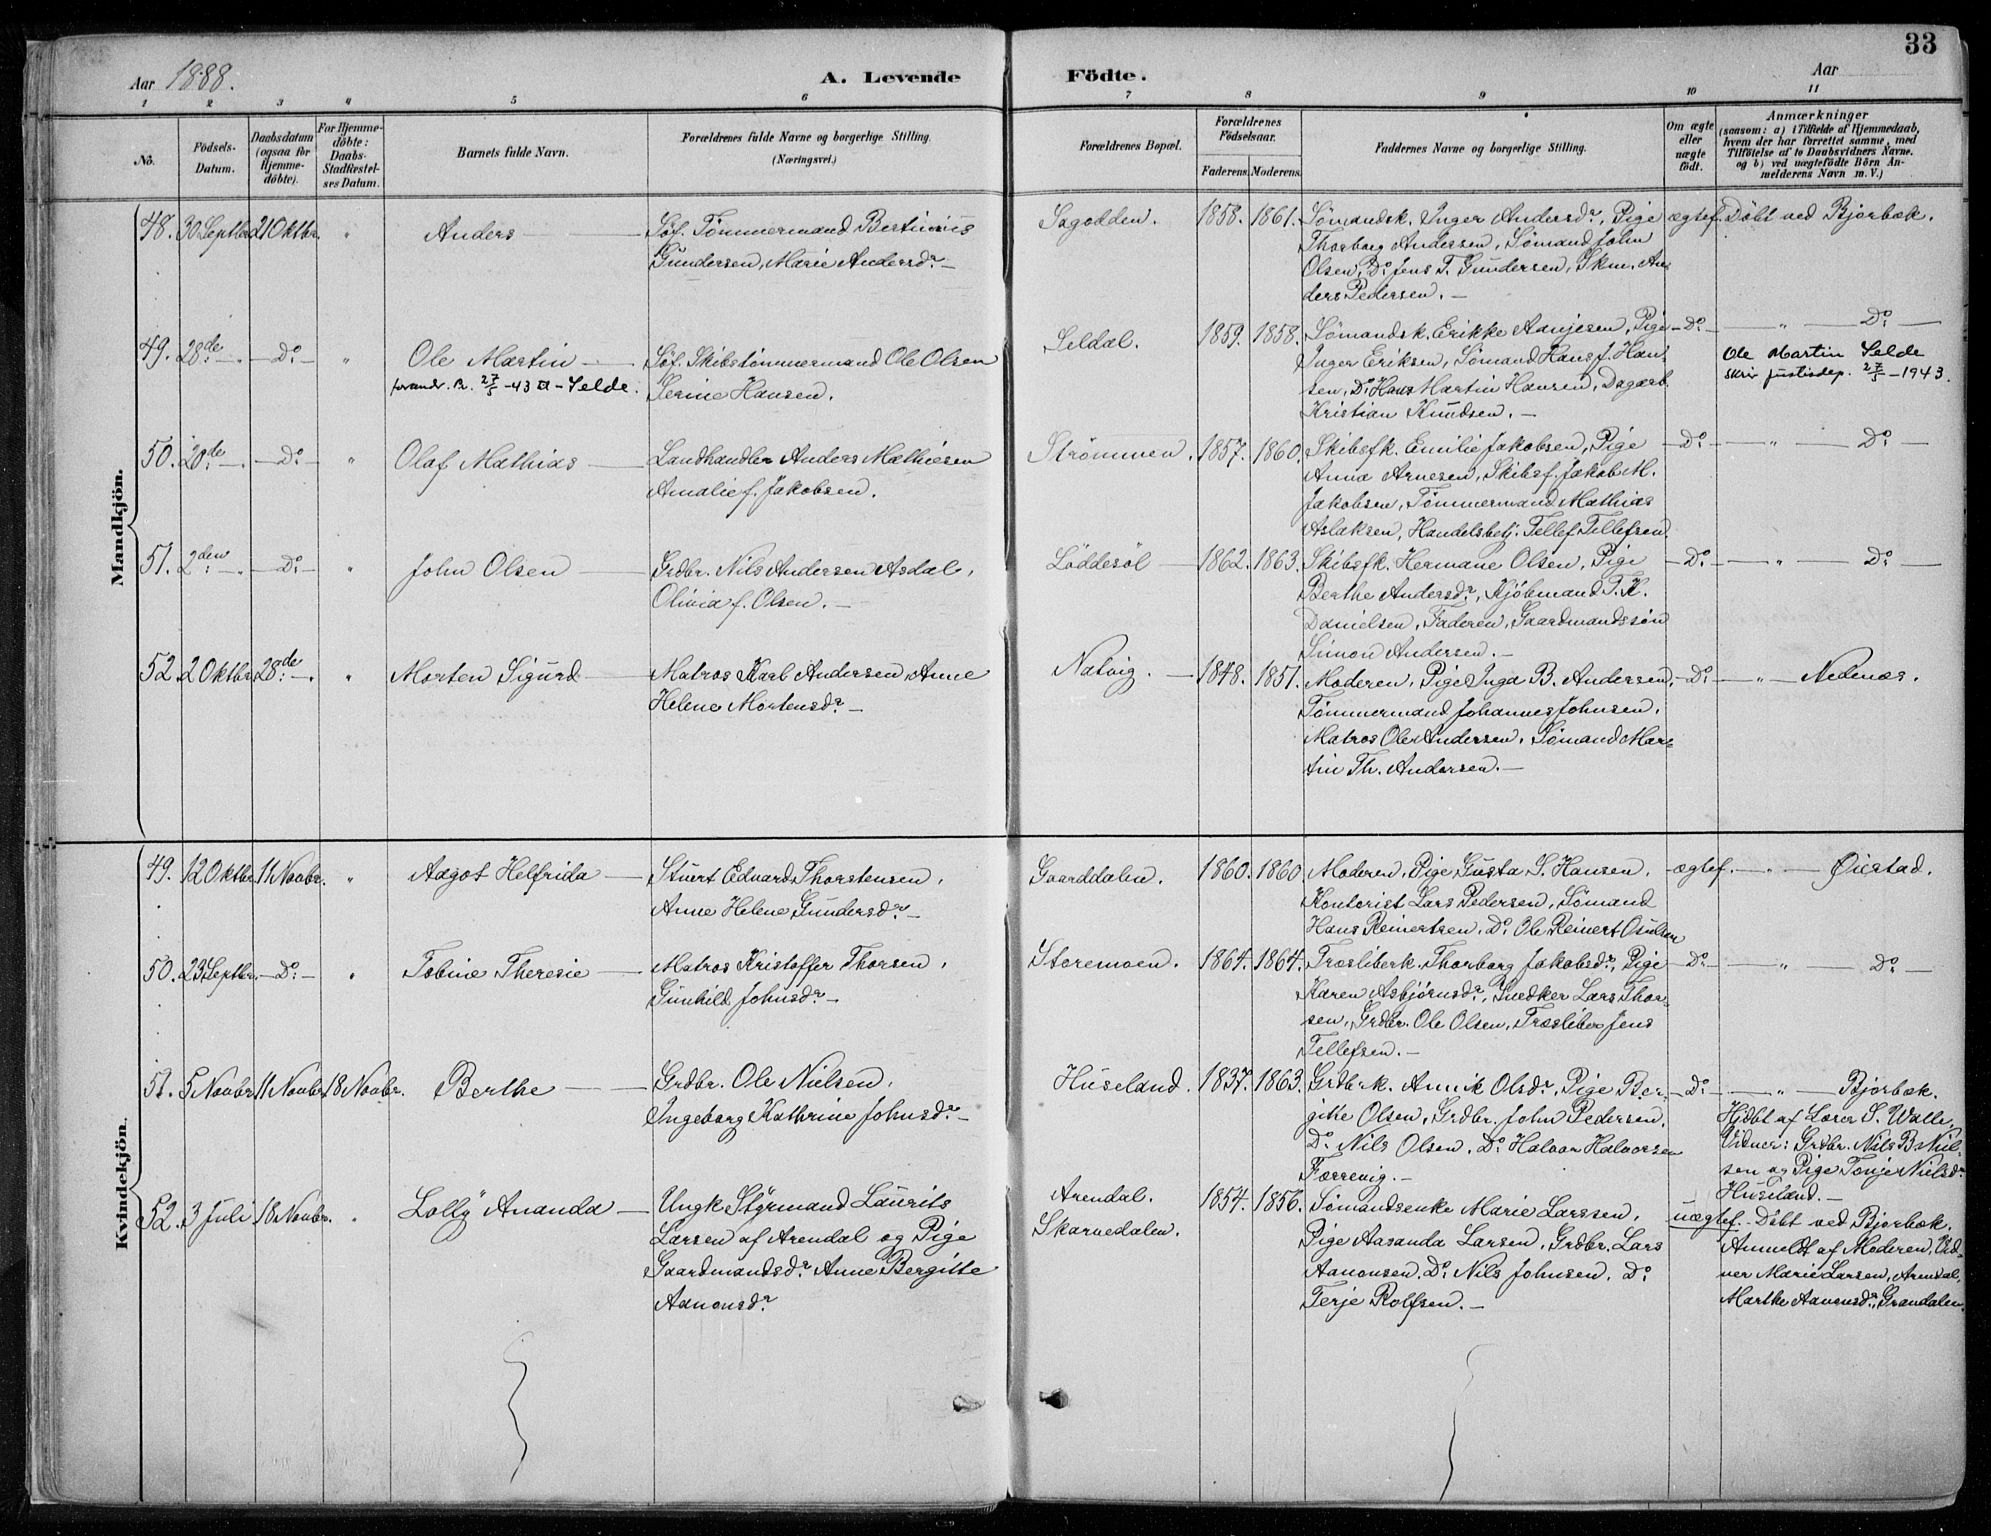 33
Aar 1888. A. Levende Födte. Aar
1 2 3 4 5 6 7 8 9 10 11
No.
Födsels-Datum.
Daabsdatum (ogsaa for Hjemme-döbte).
For Hjemme-döbte: Daabs-Stadfæstel-ses Datum.
Barnets fulde Navn.
Forældrenes fulde Navne og borgerlige Stilling. (Næringsvei.)
Forældrenes Bopæl.
Forældrenes Födselsaar. Faderens. Moderens.
Faddernes Navne og borgerlige Stilling.
Om ægte eller uægte födt.
Anmærkninger (saasom: a) i Tilfælde af Hjemmedaab, hvem der har forrettet samme, med Tilföielse af to Daabsvidners Navne, og b) ved uægtefödte Börn An-melderens Navn m. V.)
Mandkjön.
48. 30 Septbr. 21 Oktbr. " Anders —
Söf. Tømmermand Bertinius
Gundersen, Marie Andersd. —
Sagodden. 1858. 1861.
Sømandsk. Inger Andersd., Pige
Thorborg Andersen, Sømand John
Olsen, Do Jens T. Gundersen, Skm. An-
ders Pedersen. —
ægtef. Döbt ved Bjorbæk.
49. 28de " — Do — " Ole Martin —
forandr. A. 27/5 -43 til - Selde.
Söf. Skibstømmermand Ole Olsen
Serine Hansen.
Seldal. 1859. 1858.
Sømandsk. Erikke Aanjesen, Pige
Inger Eriksen, Sømand Hans J. Han-
sen, Do Hans Martin Hansen, Dagarb.
Kristian Knudsen. —
— Do — " — Do —
Ole Martin Selde
skriv justisdep. 27/5 - 1943.
50. 20de " — Do — " Olaf Mathias —
Landhandler Anders Mathiesen
Amalie f. Jakobsen.
Strømmen. 1857. 1860.
Skibsfk. Emilie Jakobsen, Pige
Anna Arnesen, Skibsf. Jakob M.
Jakobsen, Tømmermand Mathias
Aslaksen, Handelsbetj. Tellef Tellefsen.
— Do — " — Do —
51. 2den " — Do — " John Olsen —
Grdbr. Nils Andersen Asdal,
Olivia f. Olsen. —
Løddesøl — 1862. 1863.
Skibsfk. Hermane Olsen, Pige
Berthe Andersd., Kjöbmand T. K.
Danielsen, Faderen, Gaardmandssön
Simon Andersen. —
— Do — " — Do —
52. 2 Oktbr. 28de " Morten Sigurd —
Matros Karl Andersen, Anne
Helene Mortensd. —
Natvig. — 1848. 1851.
Moderen, Pige Inga B. Andersen,
Tømmermand Johannes Johnsen,
Matros Ole Andersen, Sømand Mar-
tin Th. Andersen. —
— Do — " — Nedenæs.
Kvindekjön.
49. 12 Oktbr. 11 Novbr. " Aagot Helfrida —
Stuert Edvard Thorstensen,
Anne Helene Gundersd. —
Gaarddalen. 1860. 1860
Moderen, Pige Gusta S. Hansen,
Kontorist Lars Pedersen, Sømand
Hans Reinertsen, Do Ole Reinert Osulsen
ægtef. — " — Øiestad.
50. 23 Septbr. — Do — " Tobine Theresie —
Matros Kristoffer Thorsen,
Gunhild Johnsd. —
Storemoen. 1864. 1864.
Træsliberk. Thorborg Jakobsd., Pige
Karen Asbjørnsd., Snedker Lars Thor-
sen, Grdbr. Ole Olsen, Træsliber Jens
Tellefsen. —
Do — " — Do —
51. 5 Novbr. 11 Novbr. 18 Novbr. Berthe —
Grdbr. Ole Nielsen,
Ingeborg Kathrine Johnsd. —
Huseland. 1837. 1863.
Grdbrk. Annik Olsd., Pige Ber-
gitte Olsen, Grdbr. John Pedersen,
Do Nils Olsen, Do Halvor Halvorsen
Færrevig. —
Do — " — Bjorbæk.
Hjdbt af Lærer S. Walle,
Vidner: Grdbr. Nils B. Niel-
sen og Pige Tonje Nielsd.
Huseland. —
52. 3 Juli 18 Novbr. " Lolly Ananda —
Ungk. Styrmand Laurits
Larsen af Arendal og Pige
Gaardmandsd. Anne Bergitte
Aanonsd.
Arendal.
Skarvedalen.
1854. 1856.
Sømandsenke Marie Larssen,
Pige Aasanda Larsen, Grdbr. Lars
Aanonsen, Do Nils Johnsen, Do
Terje Rolfsen. —
uægtef. Döbt ved Bjorbæk.
Anmeldt af Moderen, Vid-
ner Marie Larsen, Arendal,
Marthe Aanonsd., Grandalen.